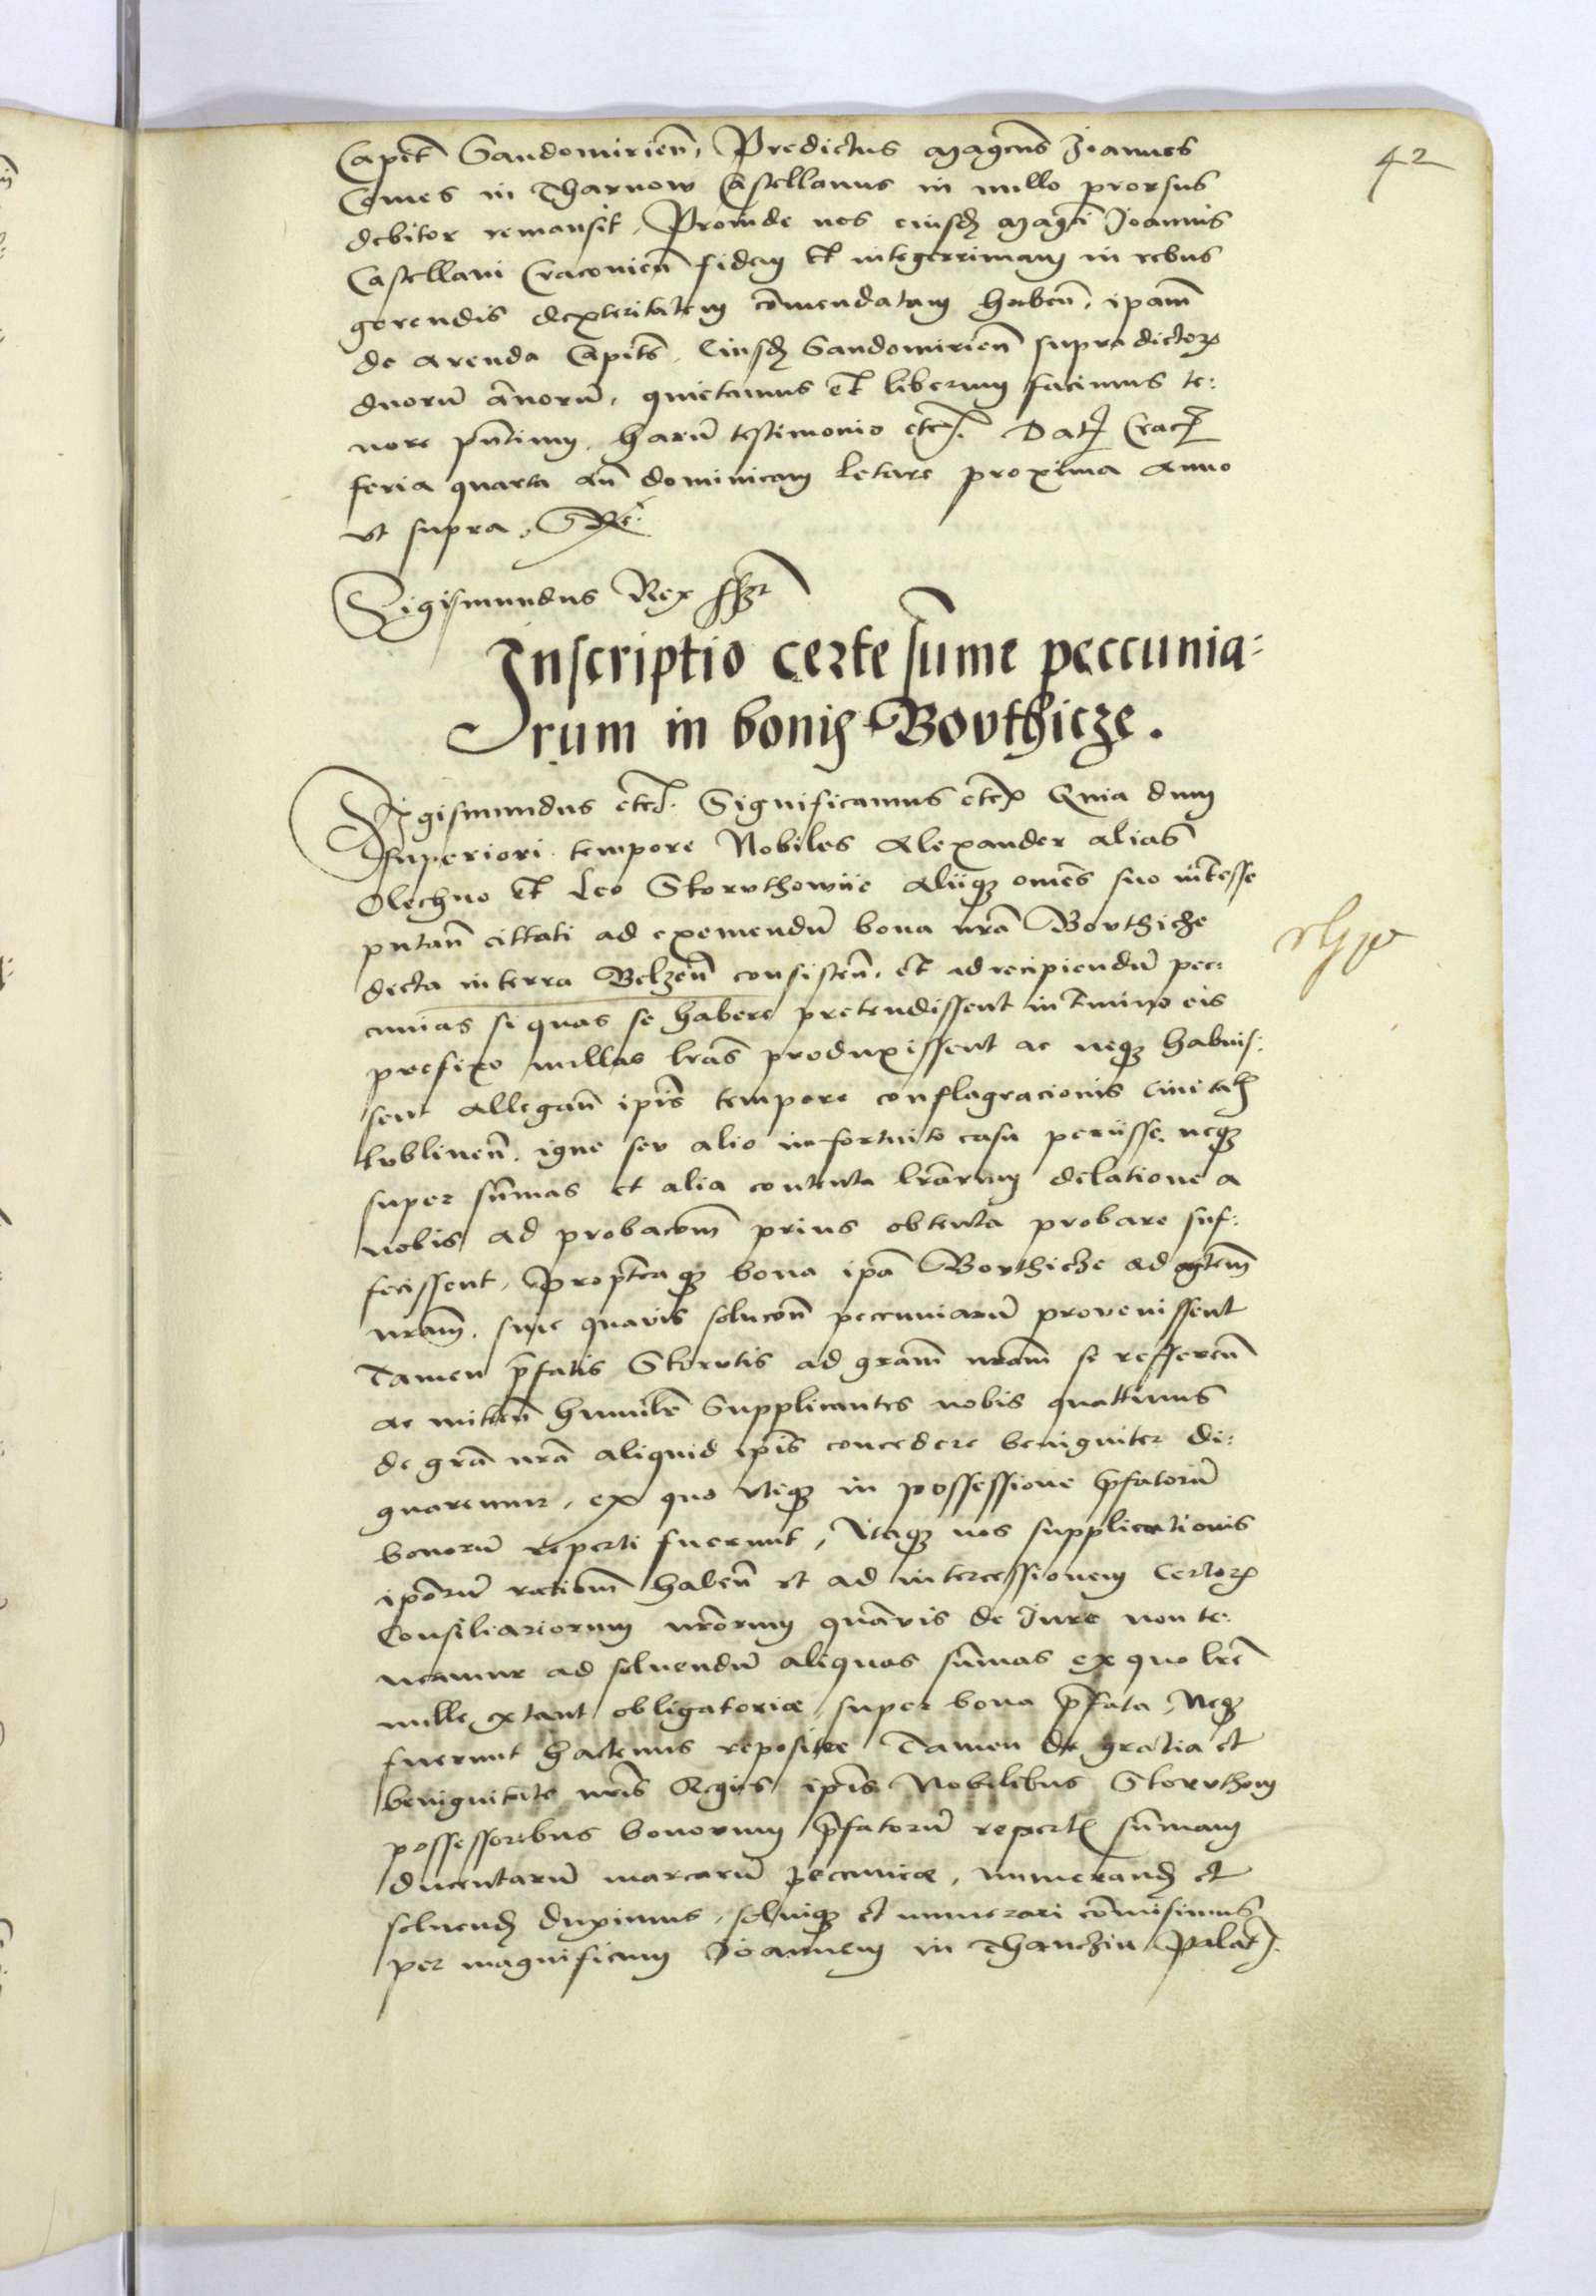 42
Capt̃ Sandomirieñ, Predictus Mag̃cus Joannes
Comes in Tharnow Castellanus in nullo prorsus
debitor remansit, Proinde nos eiusd̃ Mag̃ci Joannis
Castellani Cracovieñ fidem et integerrimam in rebus
gerendis dexteritatem com̃endatam habeñ, ip̃am
de arenda Capit̃s eiusd̃ Sandomirieñ supra dictor̃
duorũ añorũ, quietamus et liberum facimus te:
nore pñtium, harũ testimonio etc̃. Dat̃ Crac̃
feria quarta añ dominicam letare proxima Anno
ut supra,
Sigismundus Rex sst̃
Inscriptio certe sum̃e peccunia:
rum in bonis Bovthicze.
Sigismundus etc̃. Significamus etc̃ Quia dum
superiori tempore Nobiles Alexander alias
Olechno et Leo Skoruthowiie Aliiq̃ om̃es suo int̃esse
putañ cittati ad exemendũ bona nr̃a Bovthicze
dicta in terra Belzeñ consisteñ, et ad recipiendũ pec:
cunias si quas se habere pretendissent in t̃mino eis
prefixo nullas lr̃as produxissent ac neq̃ habuis:
sent allegañ ip̃is tempore conflagracionis Civitat̃
Lublineñ, igne seu alio infortuito casu periisse neq̃
super sum̃as et alia contenta lr̃arum delatione a
nobis ad probac̃om̃ prius obtenta probare suf:
fecissent, propt̃eaq̃ bona ip̃a Bovthicze ad m̃tem̃
nr̃am, sine quavis soluc̃oñ peccuniarũ provenissent
Tamen p̃fatis Skorutis ad gr̃am nr̃am se refereñ
ac mitteñ humil̃e Supplicantes nobis quattinus
de gr̃a nr̃a aliquid ip̃is concedere benigniter di:
gnaremur, ex quo uteq̃ in possessione p̃fatorũ
bonorũ reperti fuerunt, Itaq̃ nos supplicationis
ip̃orũ ratiom̃ habeñ et ad intercessionem Certor̃
Consiliariorum nr̃orum quãvis de Jure non te:
neamur ad solvendũ aliquas sum̃as ex quo lr̃e
nulle extant obligatorie super bona p̃fata, Neq̃
fuerunt hactenus reposite Tamen de gratia et
benignitate nr̃is Regiis ip̃is Nobilibus Skoruthom
possessoribus bonorum p̃fatorũ repert̃ sum̃am
ducentarũ marcarũ peccunie, numerand̃ et
solvend̃ duximus, solviq̃ et numerari com̃isimus
per magnificum Joannem in Thanczin Palat̃.